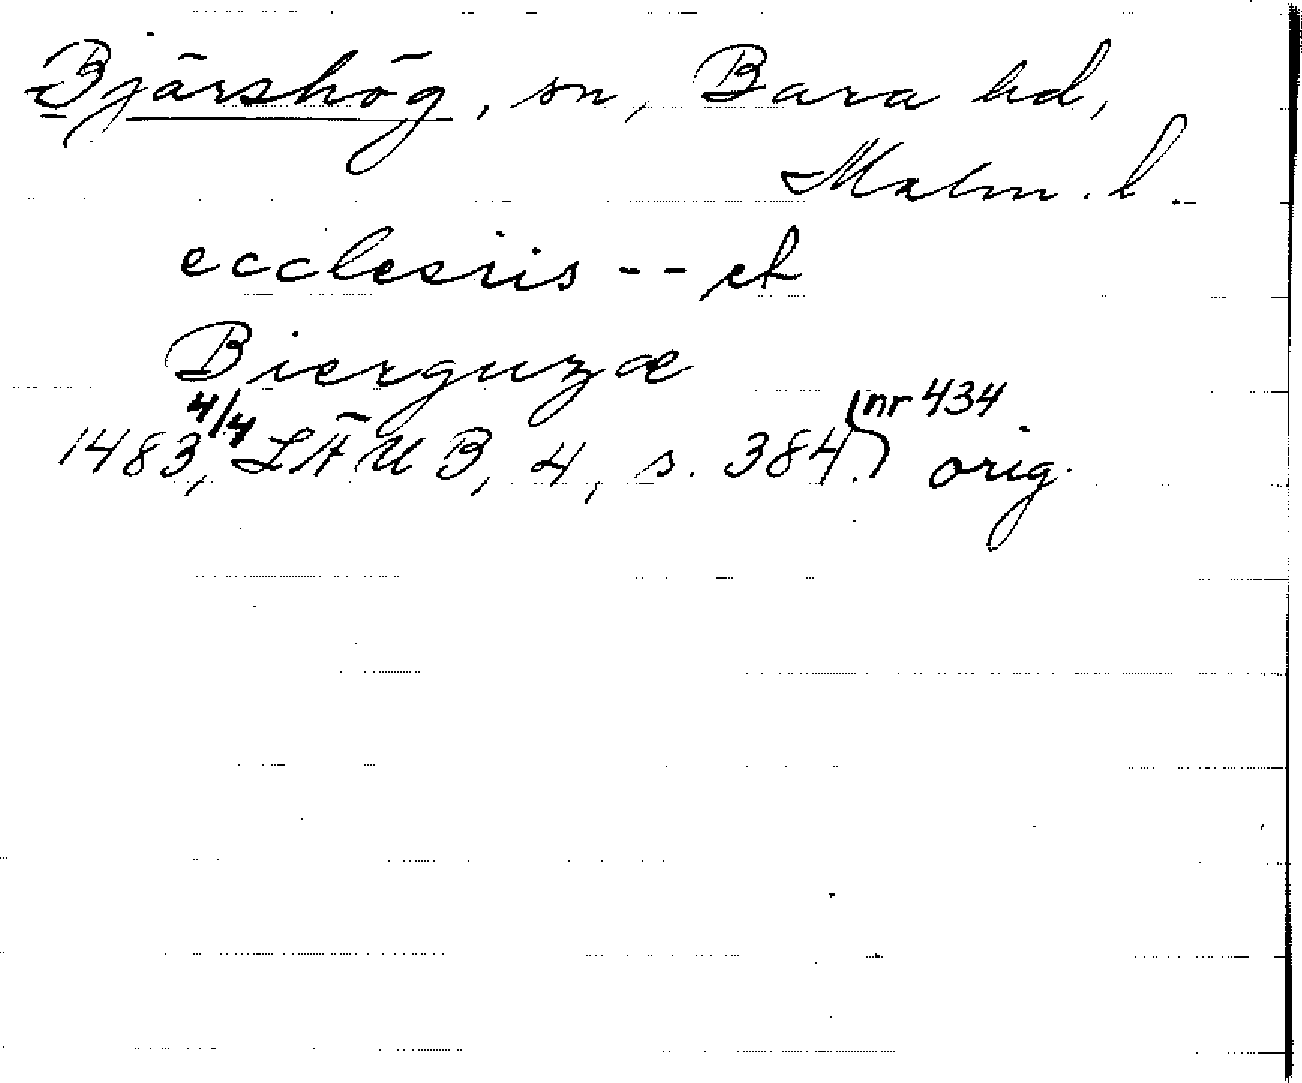 Bjärshög, sn, Bara hd,
Malm. l.
ecclesiis -- et
Bierguzæ
1483 4/4, LÄUB, 4, s. 384. nr 434 orig.